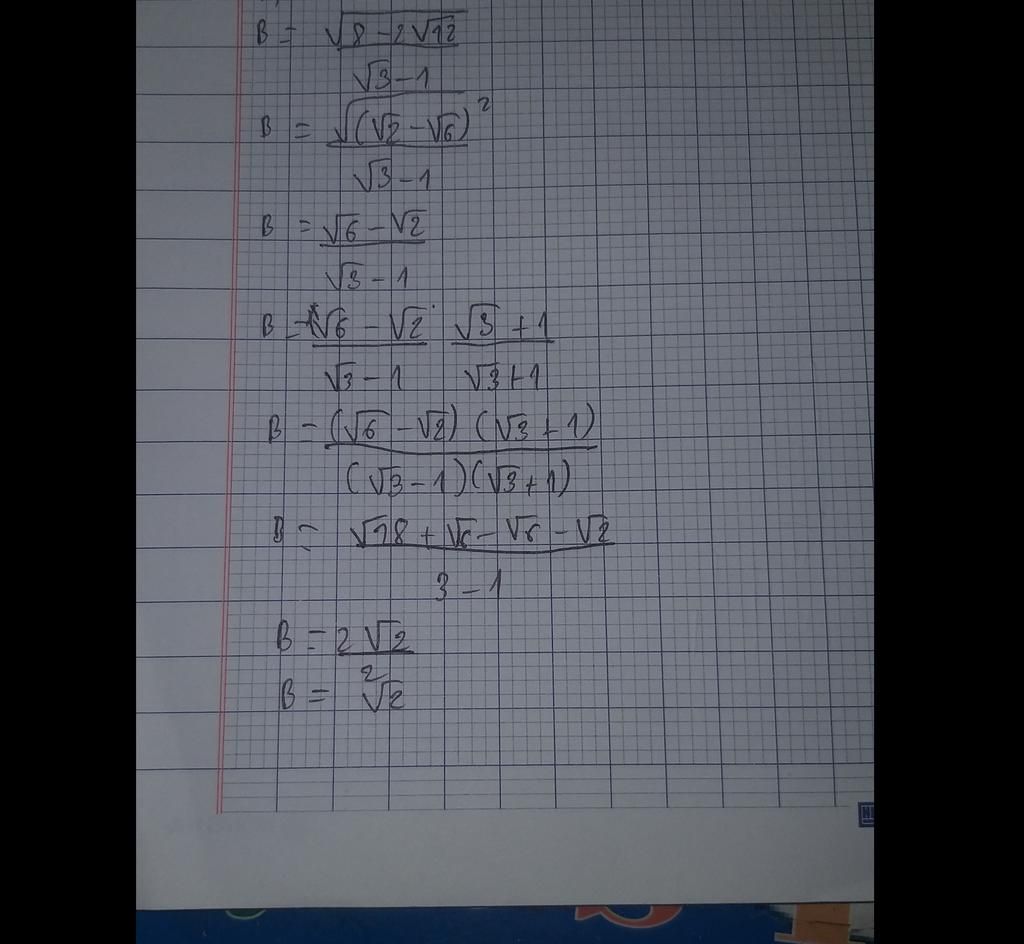 B = √(8 - 2√12) / (√3 - 1)
B = √((√2 - √6)²) / (√3 - 1)
B = (√6 - √2) / (√3 - 1)
B = (√6 - √2) / (√3 - 1) · (√3 + 1) / (√3 + 1)
B = (√6 - √2) (√3 + 1) / (√3 - 1)(√3 + 1)
B = (√18 + √6 - √6 - √2) / (3 - 1)
B = 2√2 / 2
B = √2